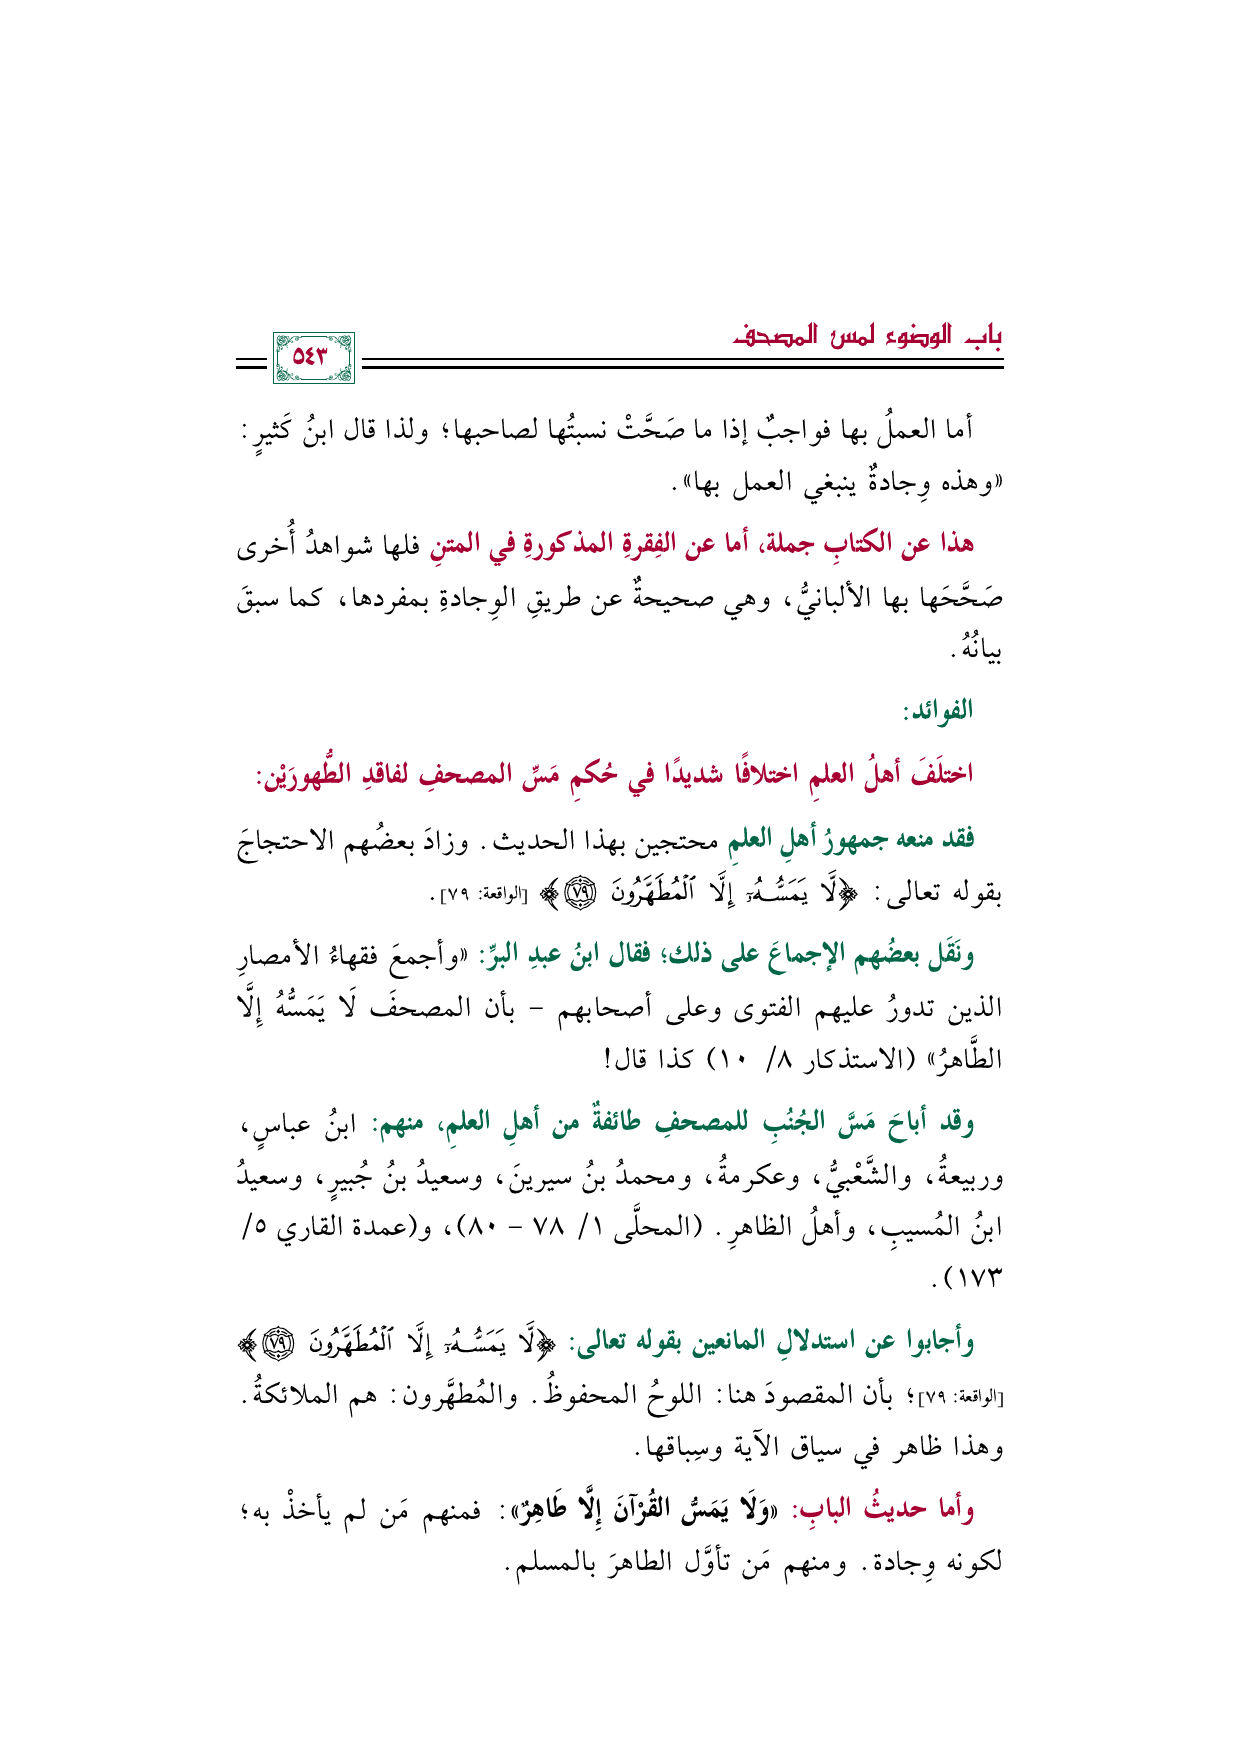 باب الوضوء لمس المصحف
٥٤٣
أما العملُ بها فواجبٌ إذا ما صَحَّتْ نسبتُها لصاحبها؛ ولذا قال ابنُ كَثيرٍ:
«وهذه وِجادةٌ ينبغي العمل بها».
هذا عن الكتابِ جملة، أما عن الفِقرةِ المذكورةِ في المتنِ فلها شواهدُ أُخرى
صَحَّحَها بها الألبانيُّ، وهي صحيحةٌ عن طريقِ الوِجادةِ بمفردها، كما سبقَ
بيانُهُ.
الفوائد:
اختلَفَ أهلُ العلمِ اختلافًا شديدًا في حُكمِ مَسِّ المصحفِ لفاقدِ الطُّهورَيْن:
فقد منعه جمهورُ أهلِ العلمِ محتجين بهذا الحديث. وزادَ بعضُهم الاحتجاجَ
بقوله تعالى: ﴿لَّا يَمَسُّهُۥٓ إِلَّا ٱلْمُطَهَّرُونَ ٧٩﴾ [الواقعة: ٧٩].
ونَقَل بعضُهم الإجماعَ على ذلك؛ فقال ابنُ عبدِ البرِّ: «وأجمعَ فقهاءُ الأمصارِ
الذين تدورُ عليهم الفتوى وعلى أصحابهم – بأن المصحفَ لَا يَمَسُّهُ إِلَّا
الطَّاهرُ» (الاستذكار ٨/ ١٠) كذا قال!
وقد أباحَ مَسَّ الجُنُبِ للمصحفِ طائفةٌ من أهلِ العلمِ، منهم: ابنُ عباسٍ،
وربيعةُ، والشَّعْبيُّ، وعكرمةُ، ومحمدُ بنُ سيرينَ، وسعيدُ بنُ جُبيرٍ، وسعيدُ
ابنُ المُسيبِ، وأهلُ الظاهرِ. (المحلَّى ١/ ٧٨ – ٨٠)، و(عمدة القاري ٥/
١٧٣).
وأجابوا عن استدلالِ المانعين بقوله تعالى: ﴿لَّا يَمَسُّهُۥٓ إِلَّا ٱلْمُطَهَّرُونَ ٧٩﴾
[الواقعة: ٧٩]؛ بأن المقصودَ هنا: اللوحُ المحفوظُ. والمُطهَّرون: هم الملائكةُ.
وهذا ظاهر في سياق الآية وسِباقها.
وأما حديثُ البابِ: «وَلَا يَمَسُّ القُرْآنَ إِلَّا طَاهِرٌ»: فمنهم مَن لم يأخذْ به؛
لكونه وِجادة. ومنهم مَن تأوَّل الطاهرَ بالمسلم.